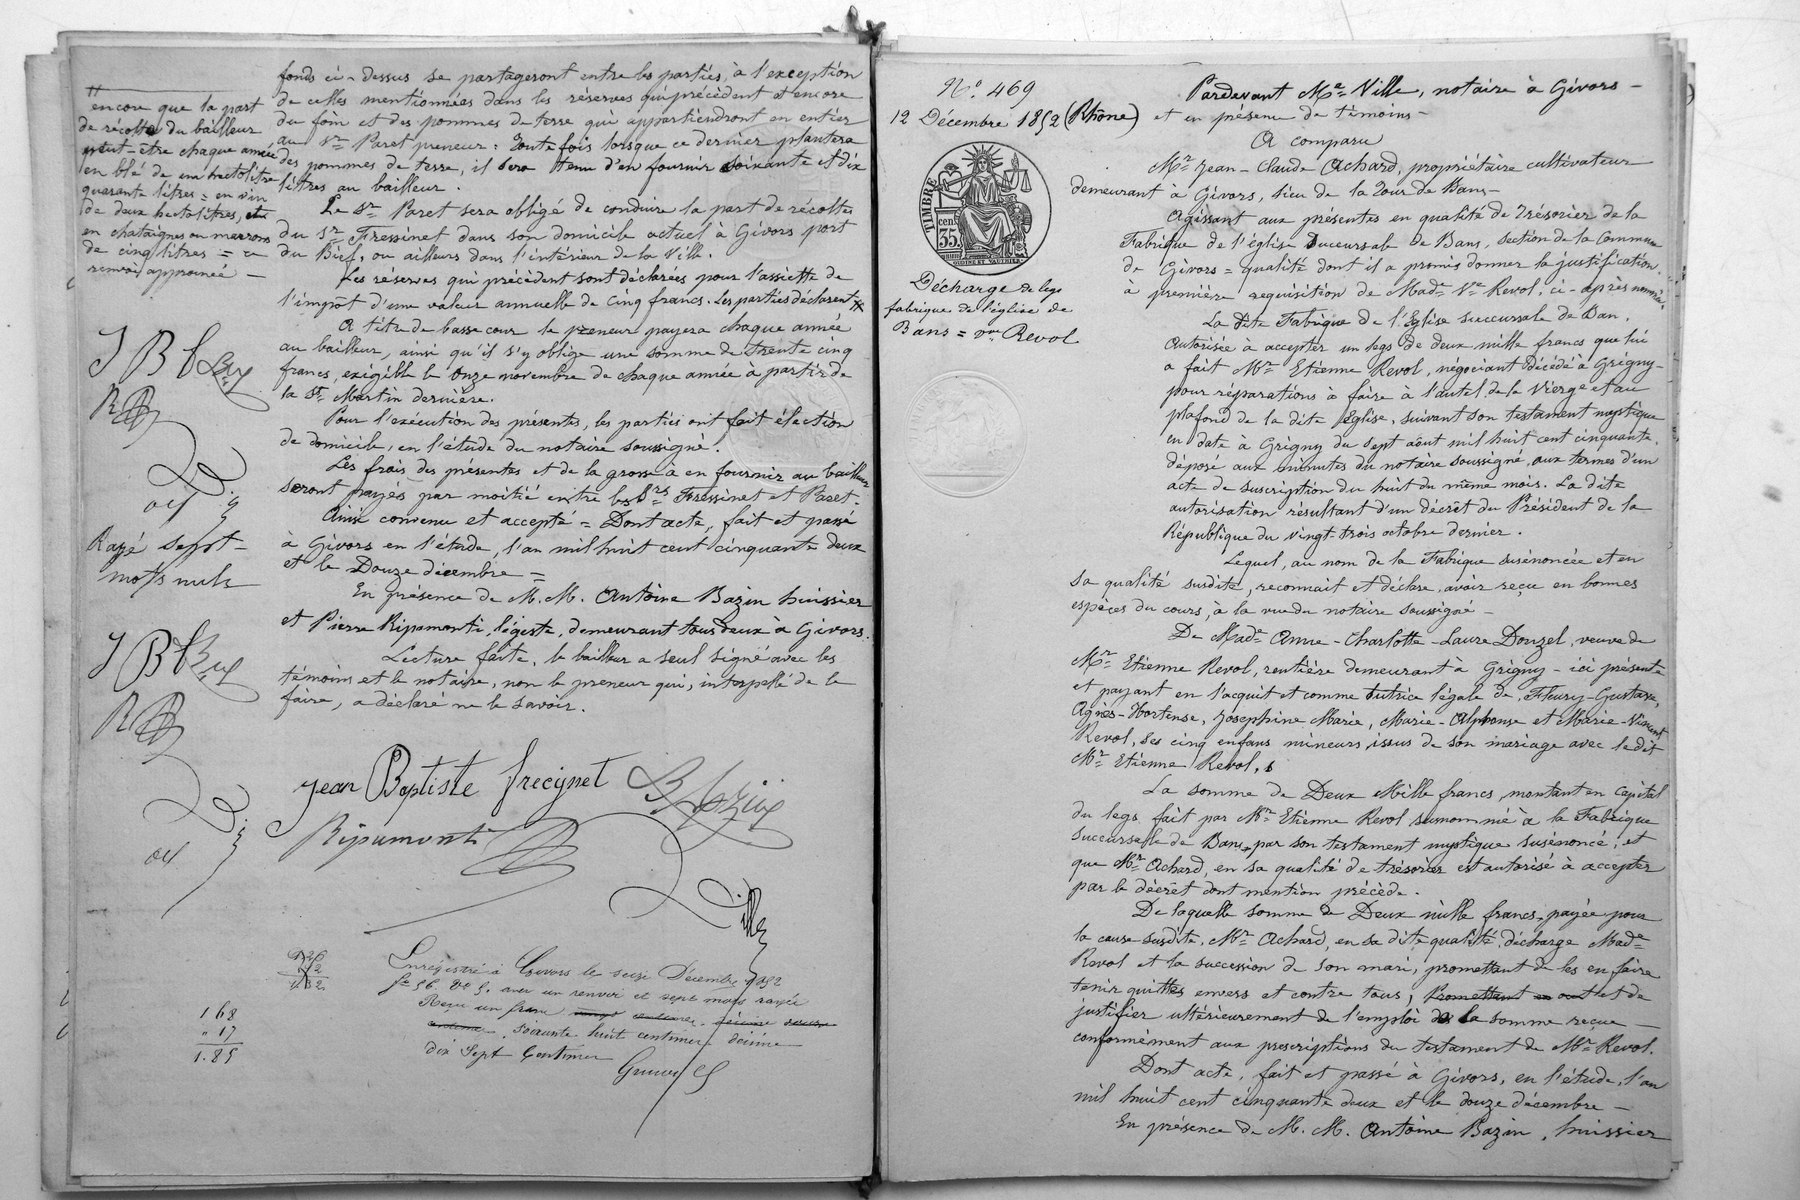 encore que la part
de récolte du bailleur
peut-être chaque année
en blé de un hectolitre
quarante litres = en vin
de deux hectolitres, et
en chataignes ou marrons
de cinq litres = ce
renvoi approuvé —
J B f
Rayé sept
mots nuls
J B f
fonds ci-dessus se partageront entre les parties, à l'exception
de celles mentionnées dans les réserves qui précèdent et encore
du foin et des pommes de terre qui appartiendront en entier
au Sr. Paret preneur : Toute fois lorsque ce dernier plantera
des pommes de terre, il sera tenu d'en fournir soixante et dix
litres au bailleur.
Le Sr. Paret sera obligé de conduire la part de récoltes
du Sr. Fressinet dans son domicile actuel à Givors port
du Bief, ou ailleurs dans l'intérieur de la Ville.
Les réserves qui précèdent sont déclarées pour l'assiette de
l'impôt d'une valeur annuelle de cinq francs. Les parties déclarent
A titre de basse cour le preneur payera chaque année
au bailleur, ainsi qu'il s'y oblige une somme de trente cinq
francs, exigible le onze novembre de chaque année à partir de
la St. Martin dernière.
Pour l'exécution des présentes, les parties ont fait élection
de domicile, en l'étude du notaire soussigné.
Les frais des présentes et de la grosse à en fournir au bailleur
seront payés par moitié entre les Srs Fressinet et Paret.
Ainsi convenu et accepté = Dont acte, fait et passé
à Givors en l'étude, l'an mil huit cent cinquante deux
et le Douze décembre =
En présence de M. M. Antoine Bazin huissier
et Pierre Ripamonti, légiste, demeurant tous deux à Givors.
Lecture faite, le bailleur a seul signé avec les
témoins et le notaire, non le preneur qui, interpellé de le
faire, a déclaré ne le savoir.
Jean Baptiste frecynet Bazin
Ripamonti
Ville
Enregistré à Givors le seize Décembre 1852
fo 56. Vo 5. avec un renvoi et sept mots rayés
Reçu un franc
soixante huit centimes, décime
dix Sept Centimes
1 68
" 17
1.85
No. 469
12 Décembre 1852
TIMBRE
35 cen.
Décharge de legs
fabrique de l'église de
Bans = vve Revol
Pardevant Me. Ville, notaire à Givors —
(Rhône) et en présence de témoins —
A comparu
Mr. Jean-Claude Achard, propriétaire cultivateur
demeurant à Givors, lieu de la Tour de Bans —
Agissant aux présentes en qualité de Trésorier de la
Fabrique de l'église succursale de Bans, section de la Commune
de Givors = qualité dont il a promis donner la justification
à première requisition de Made. Ve. Revol, ci-après nommée.
La dite Fabrique de l'Eglise succursale de Ban,
autorisée à accepter un legs de deux mille francs que lui
a fait Mr. Etienne Revol, négociant décédé à Grigny —
pour réparations à faire à l'autel de la Vierge et au
plafond de la dite Eglise, suivant son testament mystique
en date à Grigny du sept août mil huit cent cinquante,
déposé aux minutes du notaire soussigné, aux termes d'un
acte de suscription du huit du même mois. La dite
autorisation résultant d'un décret du Président de la
République du vingt-trois octobre dernier.
Lequel, au nom de la Fabrique susénoncée et en
sa qualité susdite, reconnait et déclare avoir reçu en bonnes
espèces du cours, à la vue du notaire soussigné —
De Made. Anne-Charlotte-Laure Donzel, veuve de
Mr. Etienne Revol, rentière demeurant à Grigny — ici présente
et payant en l'acquit et comme tutrice légale de Fleury-Gustave,
Agnès-Hortense, Josephine Marie, Marie-Alphonse et Marie-Vincent
Revol, ses cinq enfans mineurs issus de son mariage avec ledit
Mr. Etienne Revol,
La somme de Deux Mille francs, montant en capital
du legs fait par Mr. Etienne Revol surnommé à la Fabrique
succursale de Bans, par son testament mystique susénoncé, et
que Mr. Achard, en sa qualité de trésorier est autorisé à accepter
par le décret dont mention précède.
De laquelle somme de Deux mille francs, payée pour
la cause susdite, Mr. Achard, en sa dite qualité, décharge Made.
Revol et la succession de son mari, promettant de les en faire
tenir quittes envers et contre tous, Promettant en outre et de
justifier ultérieurement de l'emploi de la somme reçue —
conformément aux prescriptions du testament de Mr. Revol.
Dont acte, fait et passé à Givors, en l'étude, l'an
mil huit cent cinquante deux et le douze décembre —
En présence de M. M. Antoine Bazin, huissier